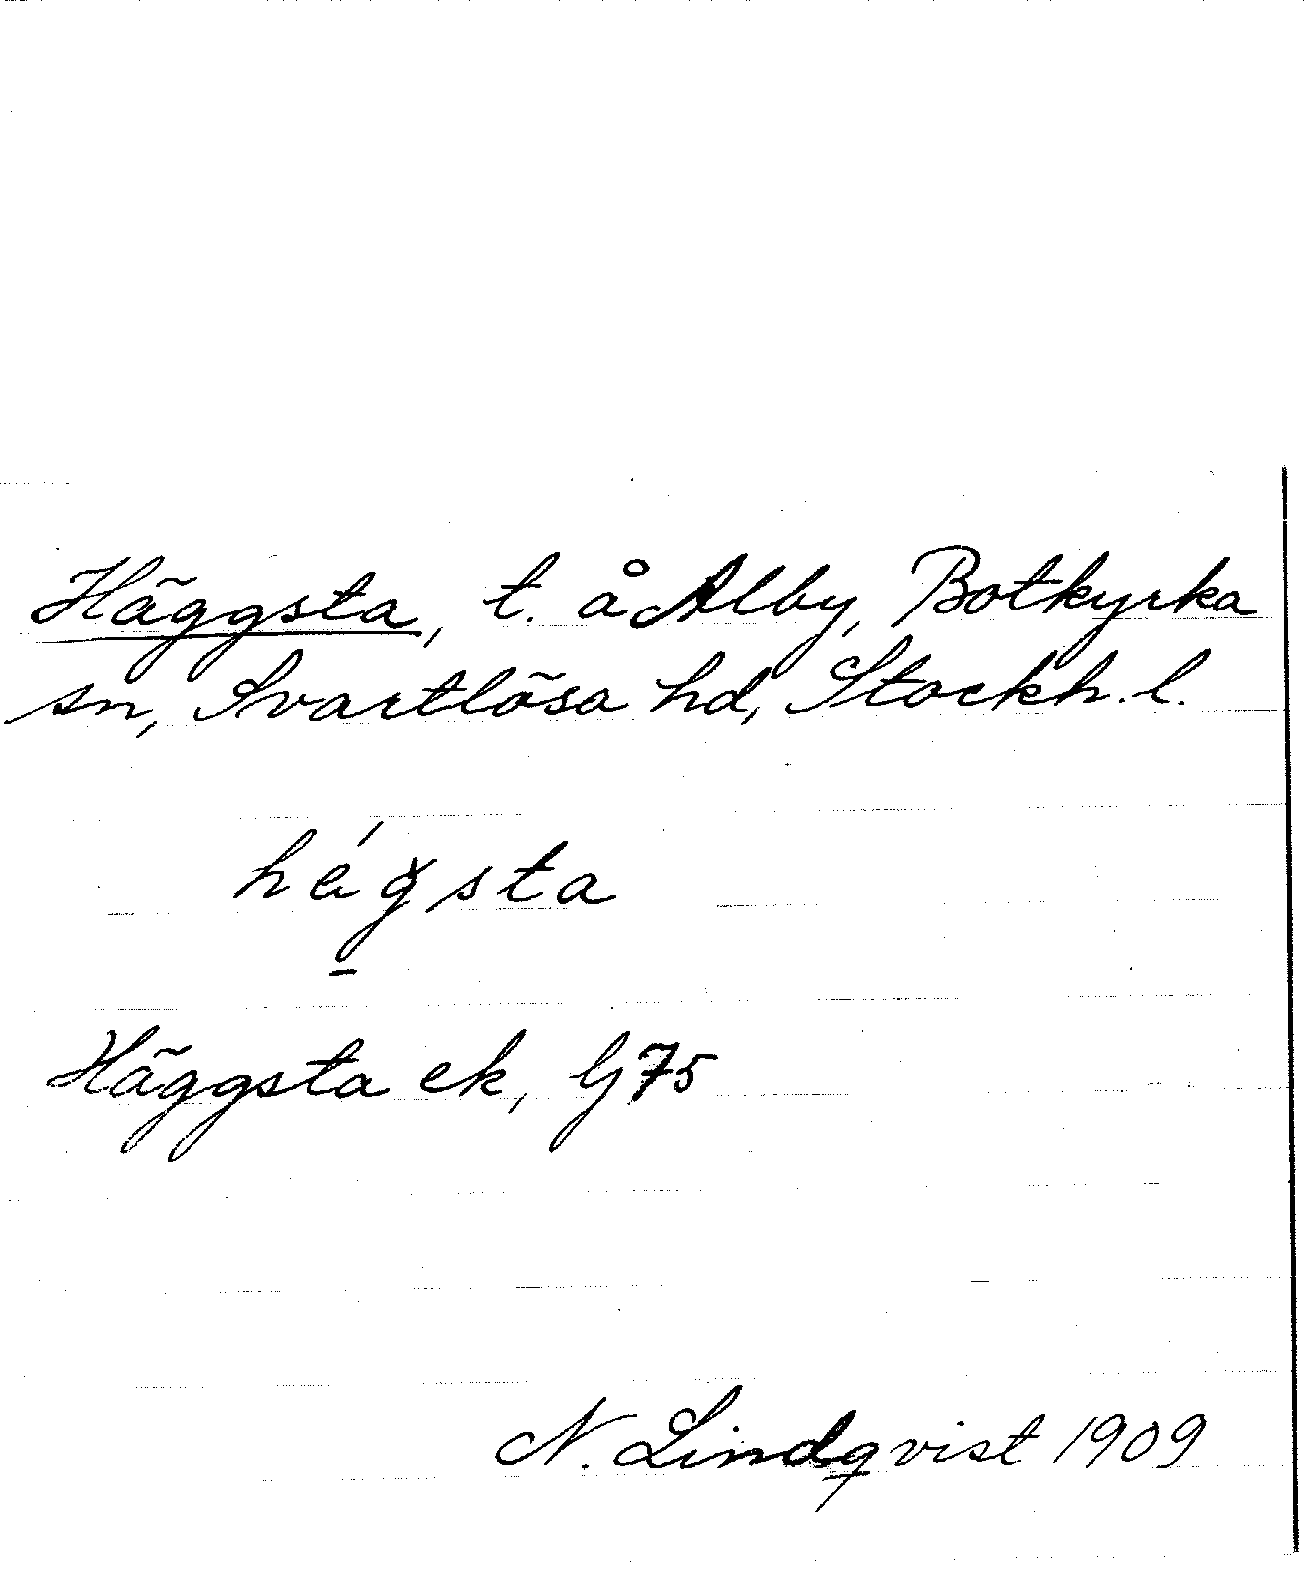 Häggsta, t. å Alby, Botkyrka
sn, Svartlösa hd, Stockh. l.
hégsta
Häggsta ek, G75
N. Lindqvist 1909